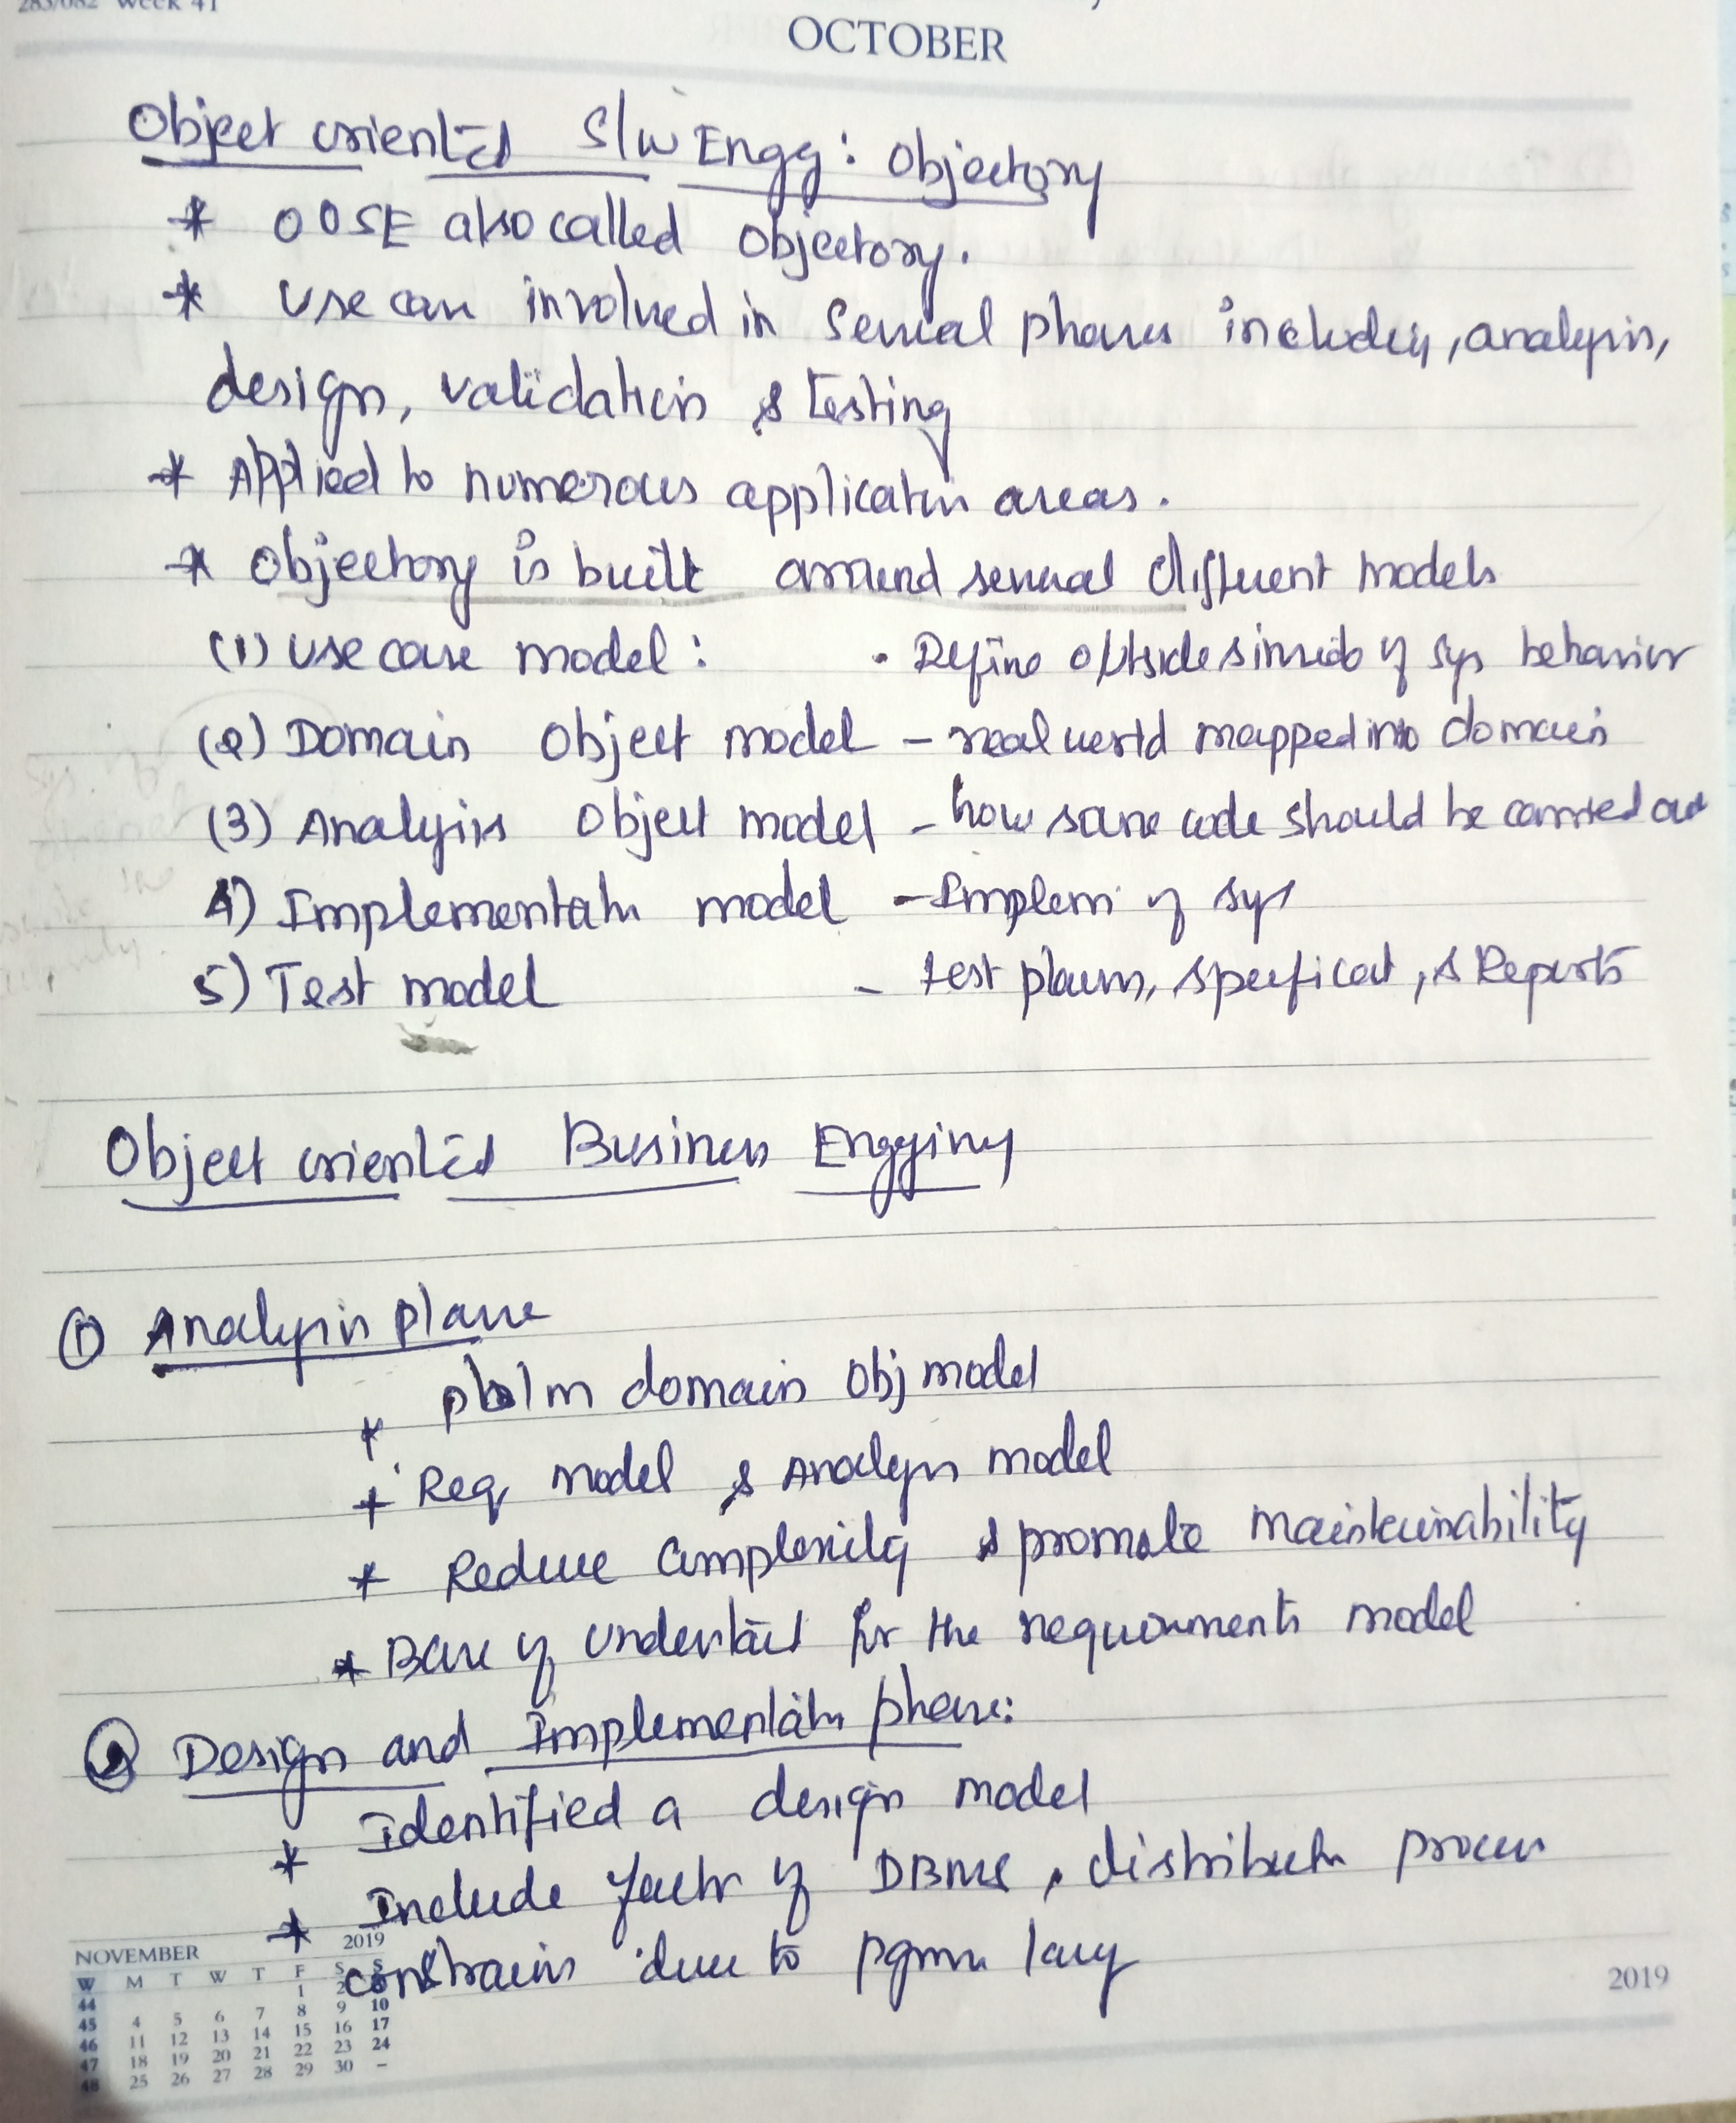 283/082 Week 41
OCTOBER
Object oriented S/w Engg : Objectory
* OOSE also called Objectory.
* Use case involved in several phases including, analysis,
design, validation & Testing
* Applied to numerous application areas.
* Objectory is built around several different models
(1) Use case model : . Define outside & inside of sys behavior
(2) Domain Object model - real world mapped into domain
(3) Analysis Object model - how code should be carried out
4) Implementatn model - Implem of sys
5) Test model - test plans, specificat, & Reports
Object oriented Business Engging
① Analysis
* pblm domain Obj model
* Req model & Analysis model
* Reduce Complexity & promote maintainability
* Base of for the requirements model
② Design and Implementatn phase:
* Identified a design model
* Include factr of DBMS, distributn process
constrains due to pgmn lang
NOVEMBER 2019
W M T W T F S S
44 1 2 3
45 4 5 6 7 8 9 10
46 11 12 13 14 15 16 17
47 18 19 20 21 22 23 24
48 25 26 27 28 29 30 –
2019